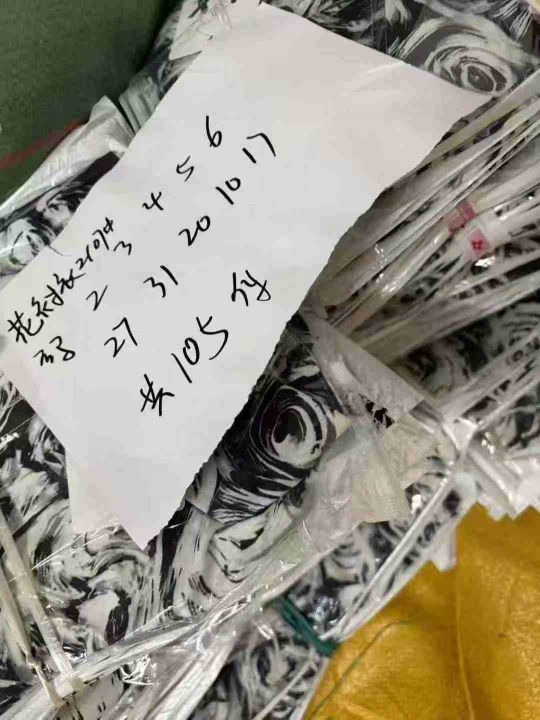 花长衬衣2104#
码 2 3 4 5 6
27 31 20 10 17
共 105 件